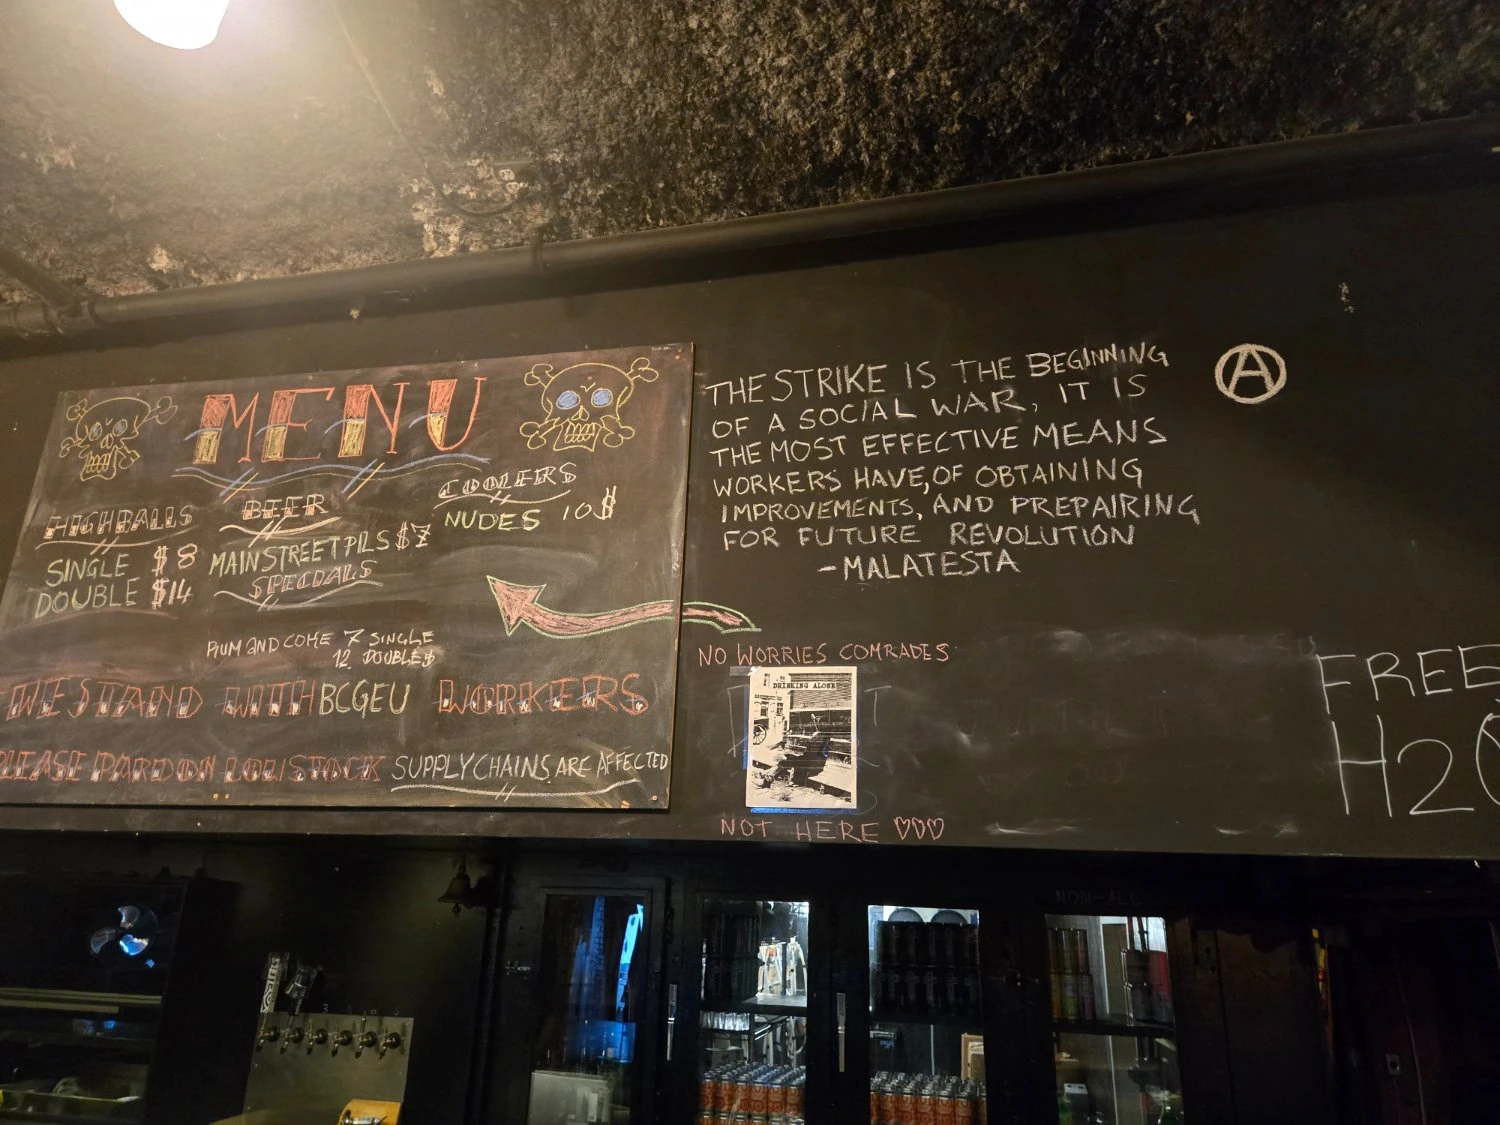 MENU
HIGHBALLS
SINGLE $8
DOUBLE $14
BEER
MAIN STREET PILS $7
SPECIALS
COOLERS
NUDES 10$
RUM AND COKE 7 SINGLE
12 DOUBLE$
WE STAND WITH BCGEU WORKERS
PLEASE PARDON LOW STOCK SUPPLY CHAINS ARE AFFECTED
THE STRIKE IS THE BEGINNING
OF A SOCIAL WAR, IT IS
THE MOST EFFECTIVE MEANS
WORKERS HAVE, OF OBTAINING
IMPROVEMENTS, AND PREPARING
FOR FUTURE REVOLUTION
-MALATESTA
A
NO WORRIES COMRADES
DRINKING ALONE
NOT HERE ♡♡♡
FREE
H2O
NON-ALC